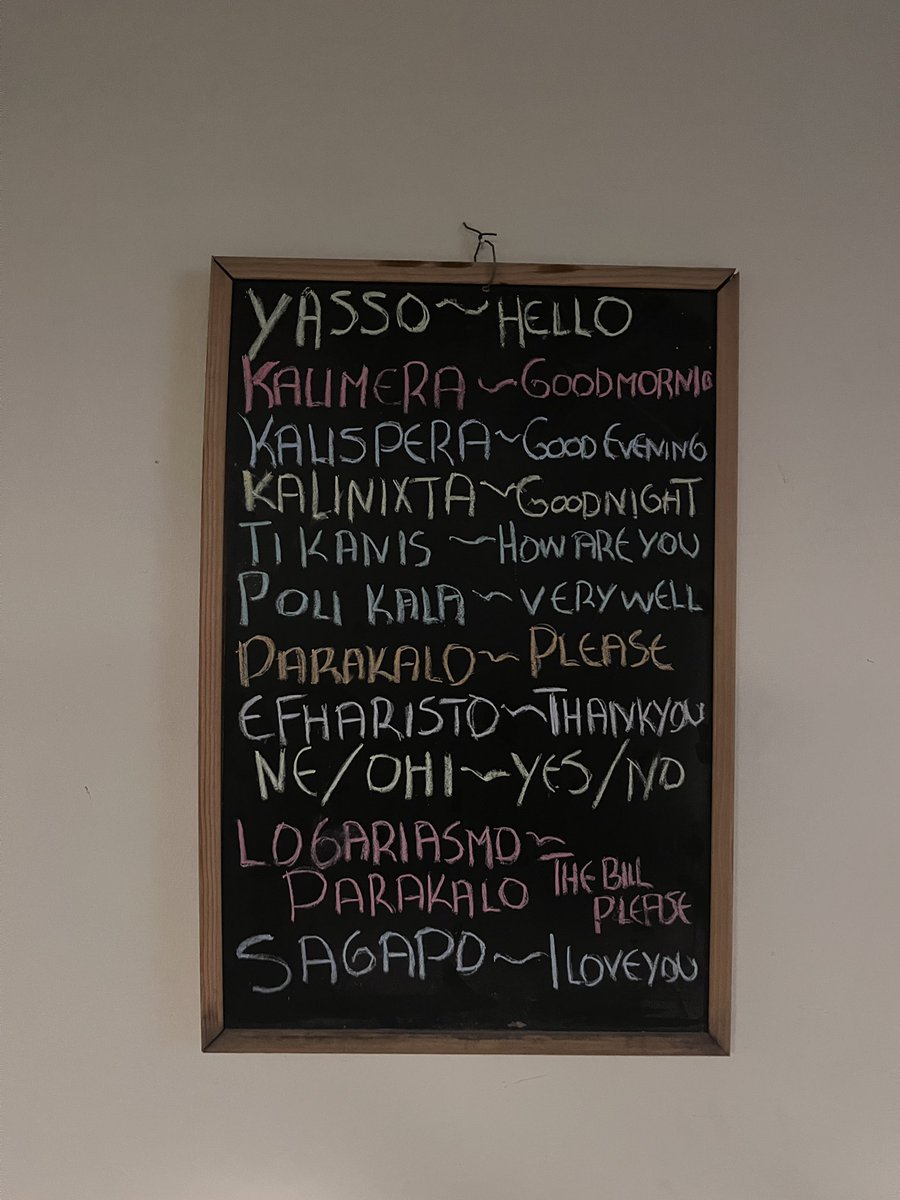 YASSO ~ HELLO
KALIMERA ~ GOOD MORNIG
KALISPERA ~ GOOD EVENING
KALINIXTA ~ GOODNIGHT
TI KANIS ~ HOW ARE YOU
POLI KALA ~ VERY WELL
PARAKALO ~ PLEASE
EFHARISTO ~ THANK YOU
NE/OHI ~ YES/NO
LOGARIASMO ~
PARAKALO THE BILL
PLEASE
SAGAPO ~ I LOVE YOU